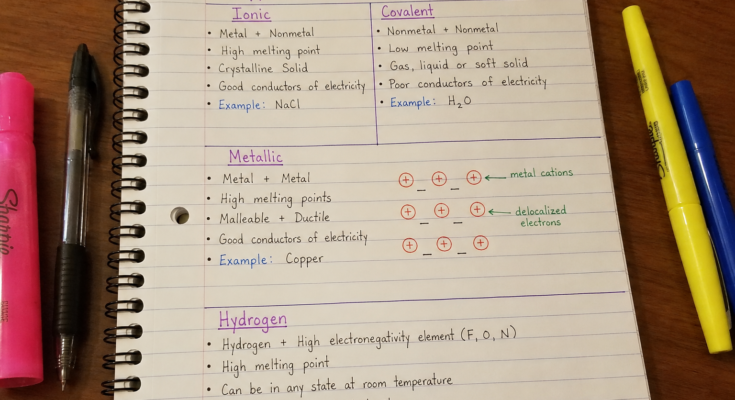 Ionic
• Metal + Nonmetal
• High melting point
• Crystalline Solid
• Good conductors of electricity
• Example: NaCl
Covalent
• Nonmetal + Nonmetal
• Low melting point
• Gas, liquid or soft solid
• Poor conductors of electricity
• Example: H₂O
Metallic
• Metal + Metal
• High melting points
• Malleable + Ductile
• Good conductors of electricity
• Example: Copper
+ + + metal cations
_ _
+ + + delocalized
_ _ electrons
+ + +
_ _
Hydrogen
• Hydrogen + High electronegativity element (F, O, N)
• High melting point
• Can be in any state at room temperature
Sharpie
Sharpie